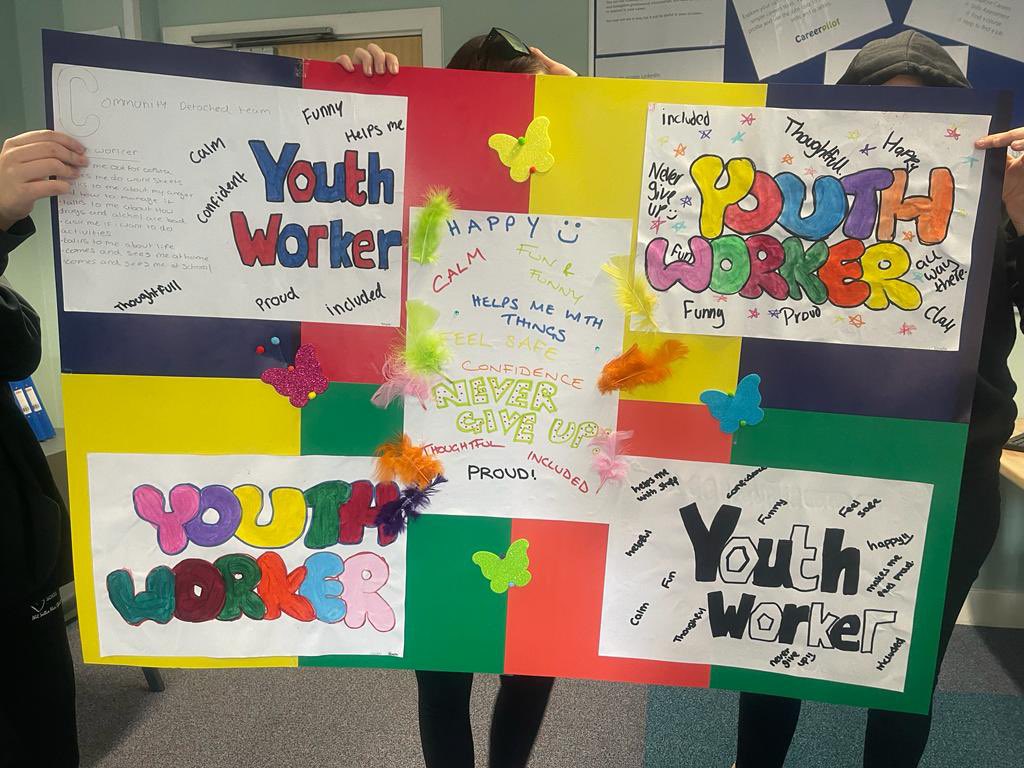 Careerpilot
Community Detached team
worker
me out for coffee
me do work sheets
talks to me about my anger
and how to manage it
talks to me about how
drugs and alcohol are bad
ask me if i want to do
activities
talks to me about life
comes and sees me at home
comes and sees me at School
Calm
Funny
Helps me
Confident
Youth
Worker
Thoughtfull
Proud
included
HAPPY
CALM
FUN &
FUNNY
HELPS ME WITH
THINGS
FEEL SAFE
CONFIDENCE
NEVER
GIVE UP
THOUGHTFUL
INCLUDED
PROUD!
included
Thoughtfull
Happy
Never
give
up
YOUTH
WORKER
Fun
all
way
there
Funny
Proud
YOUTH
WORKER
helps me
with stuff
confidence
Funny
Feel
safe
helpful
happy!!
Youth
Worker
Fun
makes me
feel proud
Calm
Thoughtful
never
give up!!
included